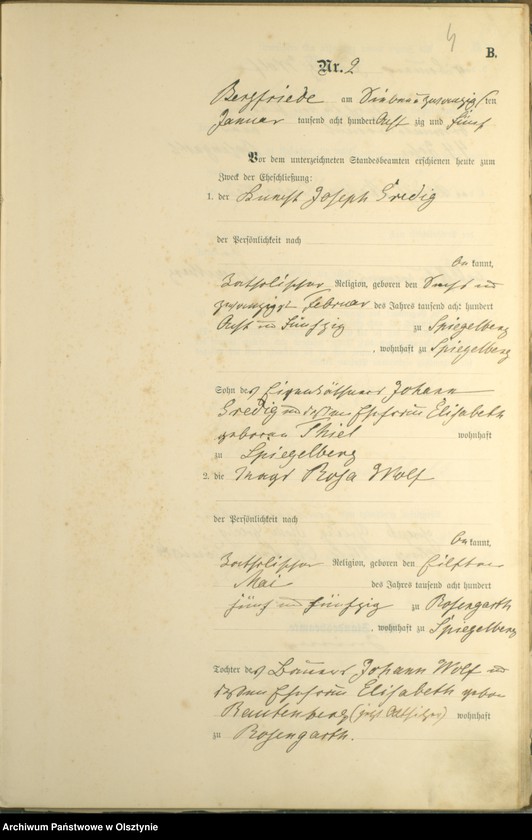 4
B.
Nr. 2
Bergfriede am Siebenundzwanzig ten
Januar tausend acht hundert Acht zig und fünf
Vor dem unterzeichneten Standesbeamten erschienen heute zum
Zweck der Eheschließung:
1. der Knecht Joseph Gredig
der Persönlichkeit nach
be kannt,
katholischer Religion, geboren den Sechs und
zwanzigst Februar des Jahres tausend acht hundert
Acht und fünfzig zu Spiegelberg
, wohnhaft zu Spiegelberg
Sohn des Eigenkäthners Johann
Gredig und dessen Ehefrau Elisabeth
geborene Thiel wohnhaft
zu Spiegelberg
2. die Magd Rosa Wolf
der Persönlichkeit nach
be kannt,
katholischer Religion, geboren den Eilften
Mai des Jahres tausend acht hundert
fünf und fünfzig zu Rosengarth
, wohnhaft zu Spiegelberg
Tochter des Bauers Johann Wolf und
dessen Ehefrau Elisabeth gebor
Rautenberg (jetzt Altsitzer) wohnhaft
zu Rosengarth.
Archiwum Państwowe w Olsztynie